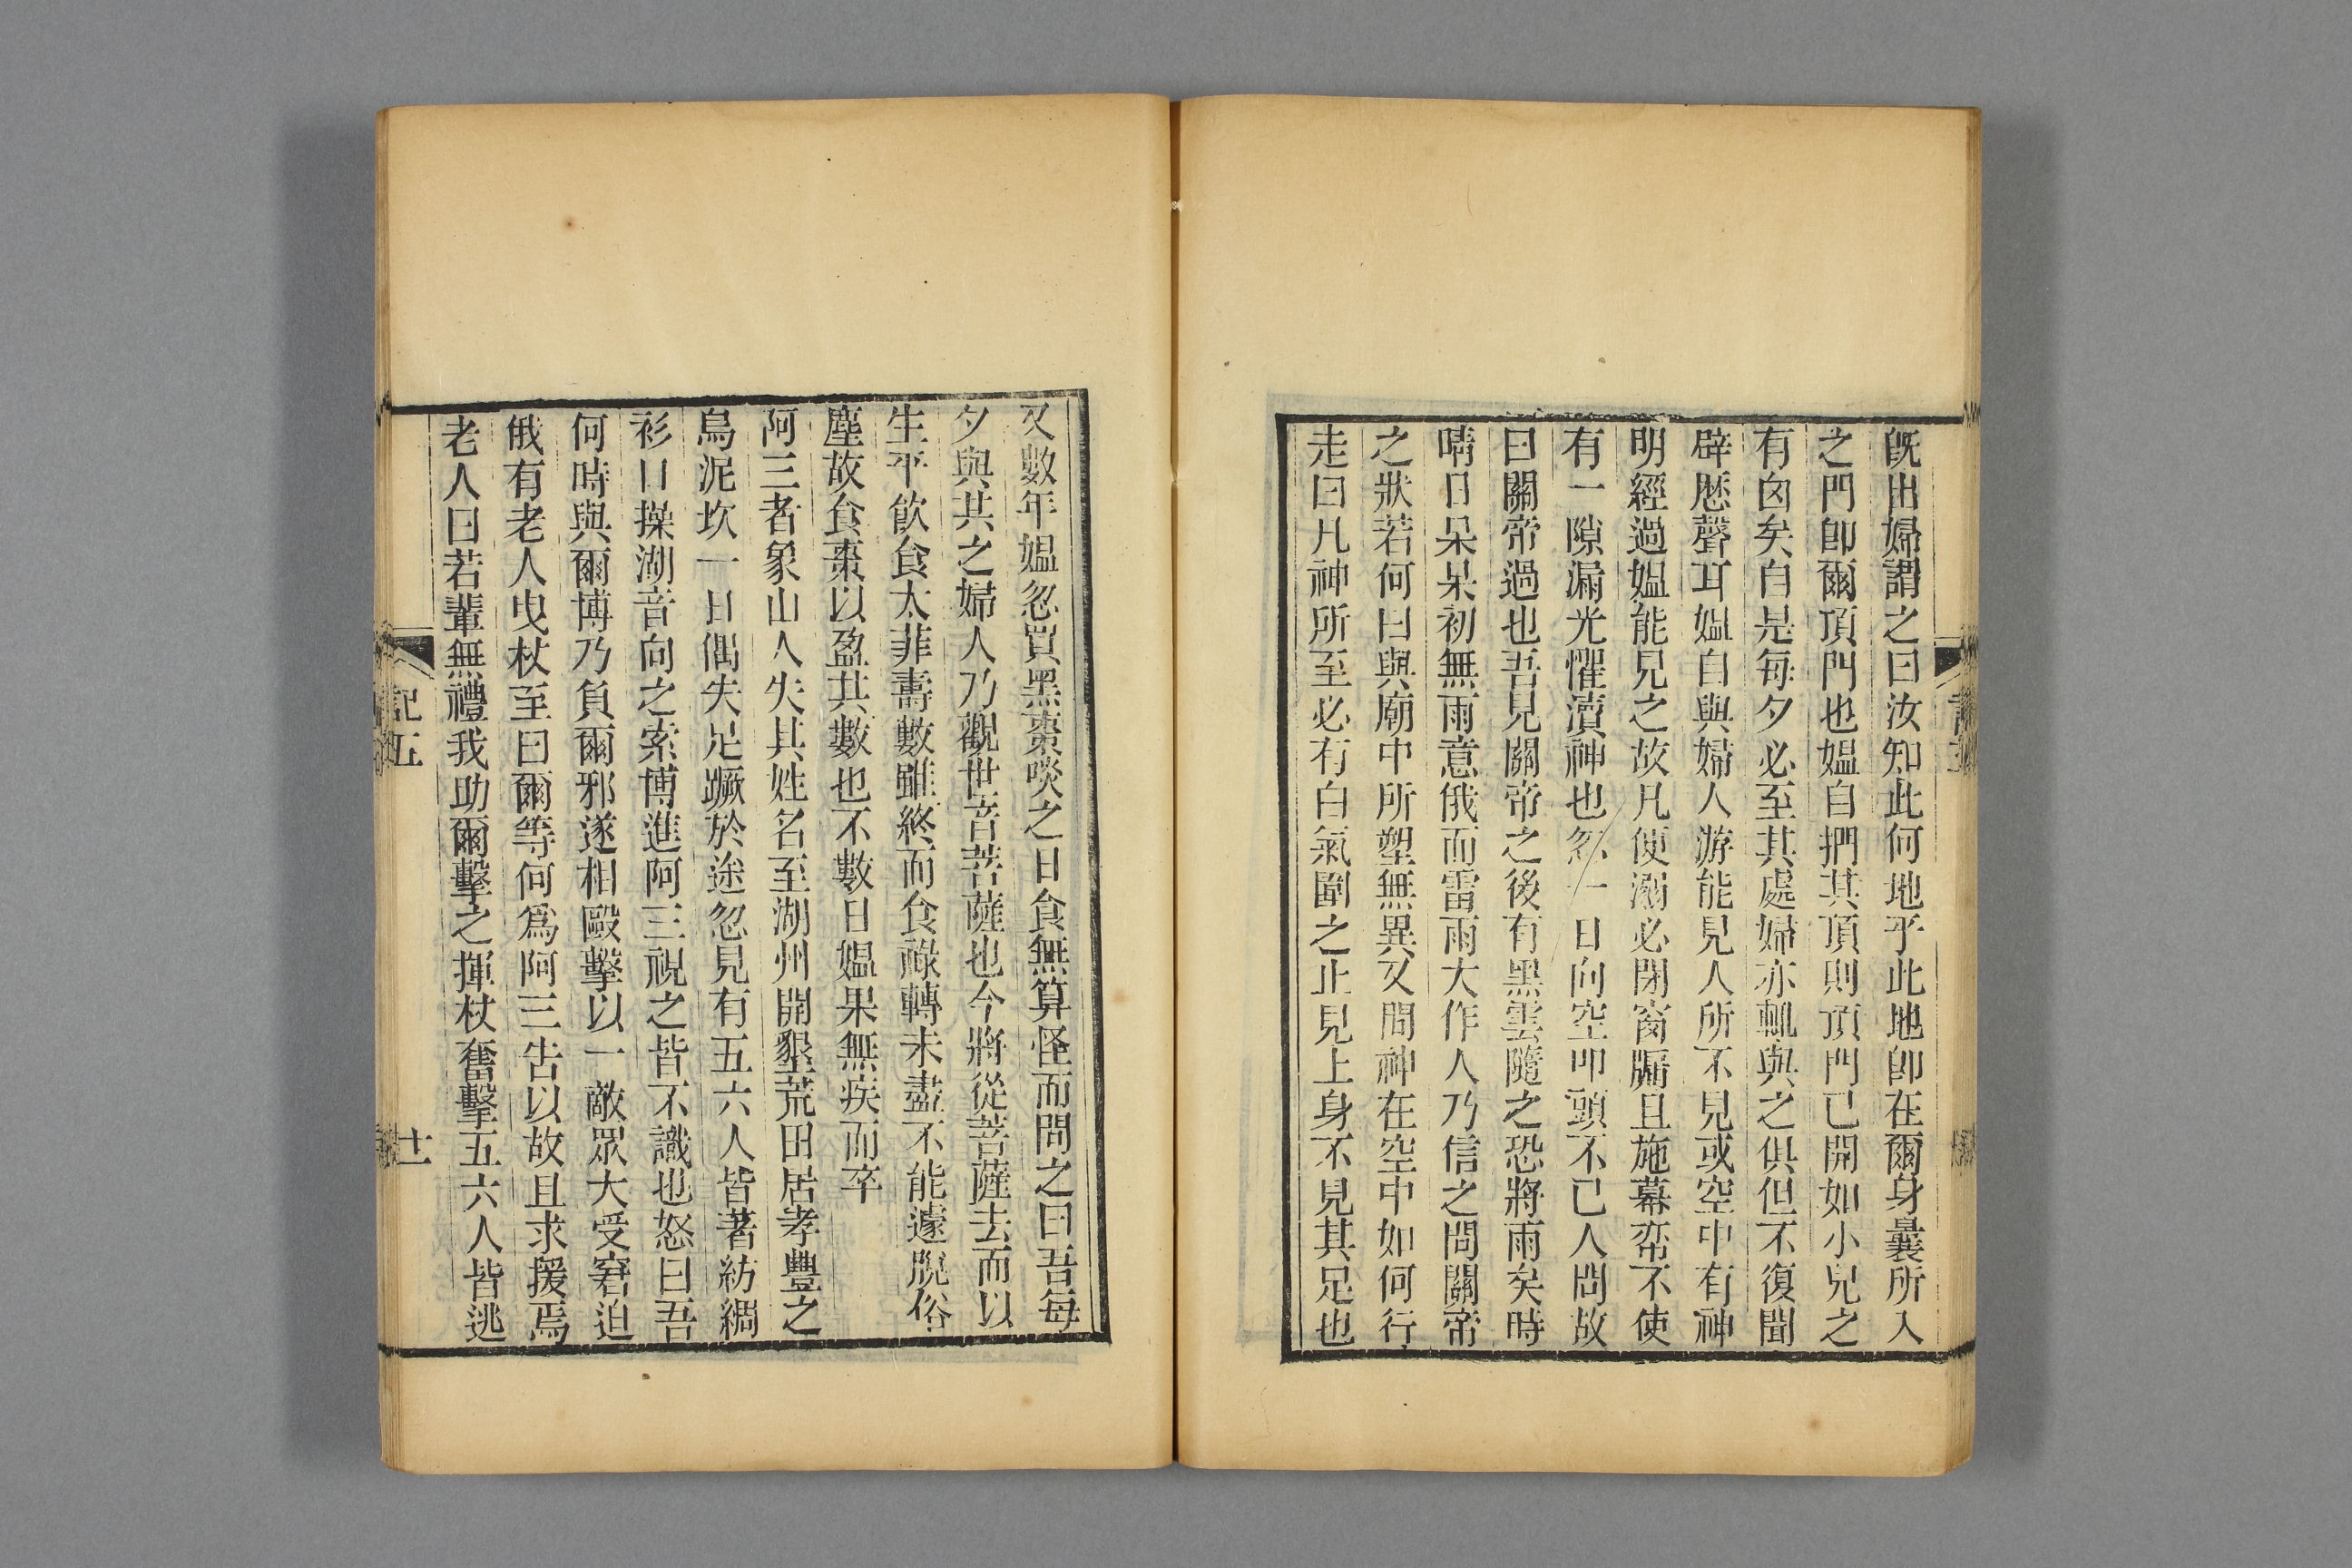 既出婦謂之曰汝知此何地乎此地卽在爾身曩所入
之門卽爾頂門也媼自捫其頂則頂門已開如小兒之
有囟矣自是每夕必至其處婦亦輒與之俱但不復聞
辟歷聲耳媼自與婦人游能見人所不見或空中有神
明經過媼能見之故凡便溺必閉窗牖且施幕帟不使
有一隙漏光懼瀆神也忽一日向空叩頭不已人問故
曰關帝過也吾見關帝之後有黑雲隨之恐將雨矣時
晴日杲杲初無雨意俄而雷雨大作人乃信之問關帝
之狀若何曰與廟中所塑無異又問神在空中如何行
走曰凡神所至必有白氣圍之止見上身不見其足也
又數年媼忽買黑棗啖之日食無算怪而問之曰吾每
夕與其之婦人乃觀世音菩薩也今將從菩薩去而以
生平飲食太菲壽數雖終而食祿轉未盡不能遽脫俗
塵故食棗以盈其數也不數日媼果無疾而卒
阿三者象山人失其姓名至湖州開墾荒田居孝豐之
烏泥坎一日偶失足蹶於途忽見有五六人皆著紡綢
衫口操湖音向之索博進阿三視之皆不識也怒曰吾
何時與爾博乃負爾邪遂相毆擊以一敵眾大受窘迫
俄有老人曳杖至曰爾等何爲阿三告以故且求援焉
老人曰若輩無禮我助爾擊之揮杖奮擊五六人皆逃
記五
十一